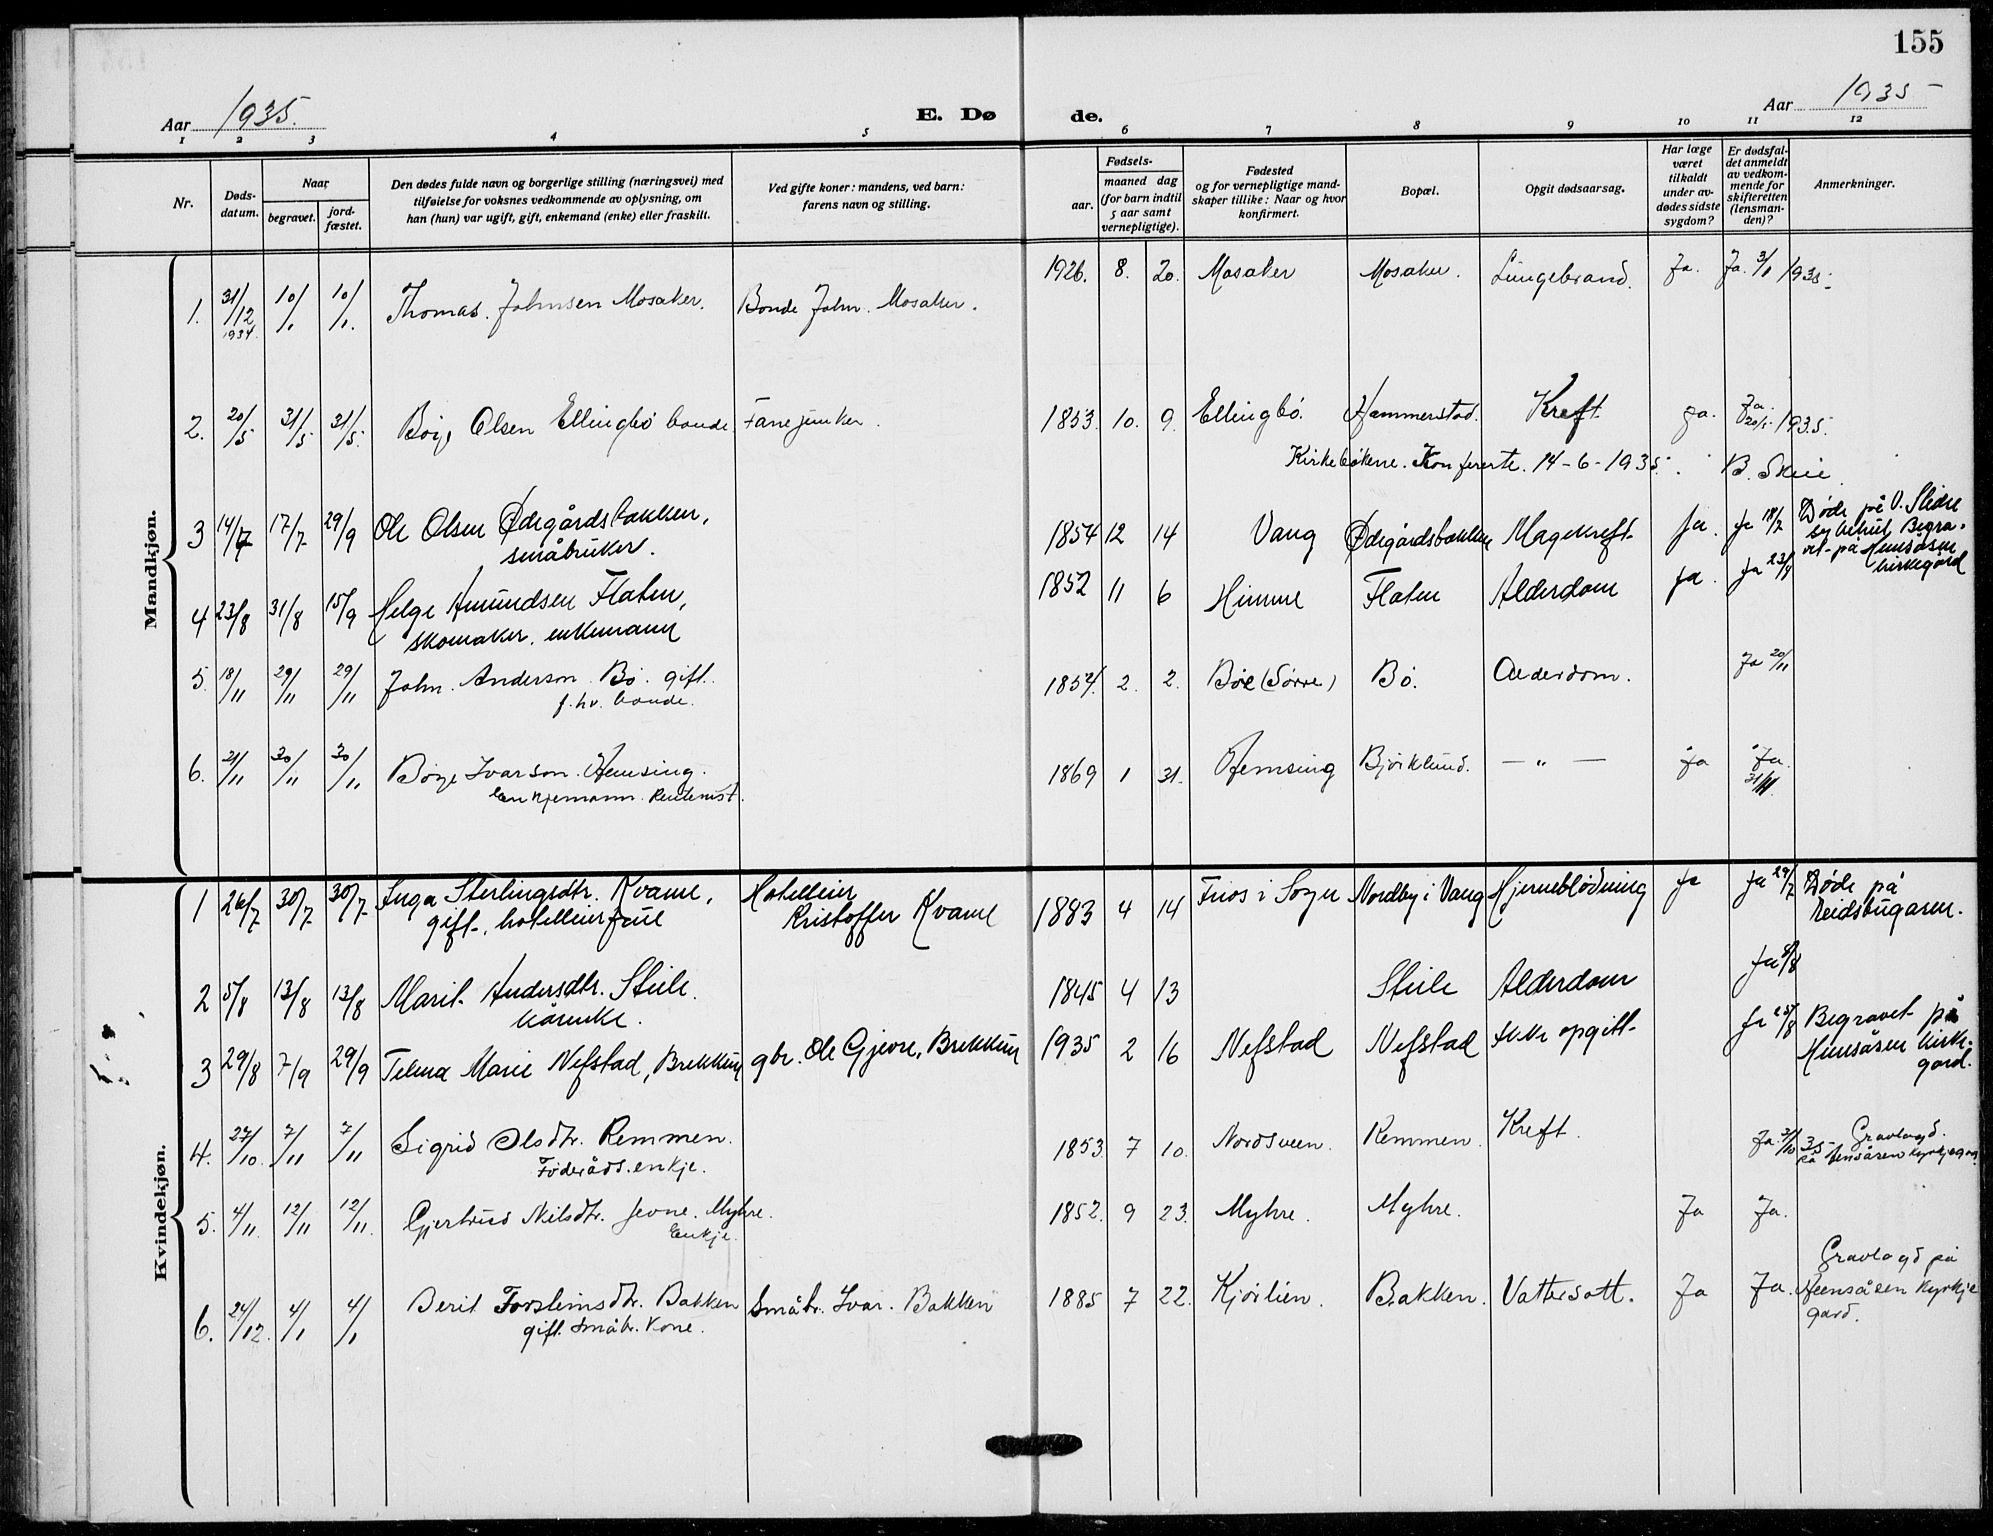 155
Aar 1935.
E. Døde.
Aar 1935
1 2 3 4 5 6 7 8 9 10 11 12
Nr.
Døds-
datum.
Naar
begravet.
jord-
fæstet.
Den dødes fulde navn og borgerlige stilling (næringsvei) med
tilføielse for voksnes vedkommende av oplysning, om
han (hun) var ugift, gift, enkemand (enke) eller fraskilt.
Ved gifte koner: mandens, ved barn:
farens navn og stilling.
Fødsels-
aar.
maaned dag
(for barn indtil
5 aar samt
vernepligtige).
Fødested
og for vernepligtige mand-
skaper tillike: Naar og hvor
konfirmert.
Bopæl.
Opgit dødsaarsag.
Har læge
været
tilkaldt
under av-
dødes sidste
sygdom?
Er dødsfal-
det anmeldt
av vedkom-
mende for
skifteretten
(lensman-
den)?
Anmerkninger.
Mandkjøn.
1. 31/12 1934. 10/1 10/1. Thomas. Johnsen Mosaker. Bonde John. Mosaker. 1926. 8. 20. Mosaker Mosaker. Lungebrand. Ja. Ja. 3/1 1935.
2. 20/5 31/5 31/5. Olsen Ellingbö bonde Fanejunker. 1853. 10. 9. Ellingbö. Hammerstad. Kreft ja. Ja 20/5. 1935.
Kirkebökene. Konfererte. 14-6-1935. B. Skeie
3 14/7 17/7 29/9 Ole Olsen Ødegårdsbakken,
småbruker.
1854 12 14 Vang Ødegårdsbakken Magekreft Ja. Ja 18/7 Døde på V. Slidre
sykehus. Begra-
vet på Hensåsen
kirkegård
4 23/8 31/8 15/9 Helge Amundsen Flaten,
skomaker. enkemann
1852 11 6 Hemme Flaten Alderdom Ja. Ja 23/8
5. 18/11 29/11 29/11 John. Anderson Bö. gift.
f.hv. bonde.
1854. 2. 2. Böe (Sörre) Bö. Alderdom. Ja 20/11
6. 21/11 30/11 30/11 Ivarson. Hemsing.
Enkjemann. Rentenist.
1869 1 31. Hemsing Björklund. — „ — Ja Ja.
Kvindekjøn.
1 26/7 30/7 30/7 Inga Sterlingsdtr. Kvame,
gift, hotelleierfrue
Hotelleier
Kristoffer Kvame
1883 4 14 Frios i Sogn Nordby i Vang Hjerneblødning Ja Ja 29/7 Døde på
Eidsbugaren.
2 5/8 13/8 13/8 Marit Andersdtr. Stiile.
kårenke.
1845 4 13 Stiile Alderdom Ja 6/8
3 29/8 7/9 29/9 Telma Marie Nefstad, Brekkum gbr. Ole Gjevre, Brekkum 1935 2 16 Nefstad Nefstad Ikke opgitt Ja 25/8 Begravet på
Hensåsen kirke-
gård.
4. 27/10. 7/11 7/11 Sigrid Olsdtr. Remmen.
Föderåds.enkje.
1853. 7 10. Nordsveen. Remmen. Kreft. Ja. 31/10 35 Gravlagd.
på Hensåsen kyrkjegard.
5. 4/11. 12/11 12/11. Gjertrud Nilsdtr. Jevne. Myhre.
Enkje.
1852. 9 23. Myhre. Myhre. Ja Ja.
6. 24/12. 4/1 4/1 Berit Torsteinsdtr. Bakken
gift. Småbr. Kone.
Småbr. Ivar. Bakken 1885 7 22. Kjörlien. Bakken. Vattersott. Ja Ja. Gravlagd på
Heensåsen kyrkje
gard.